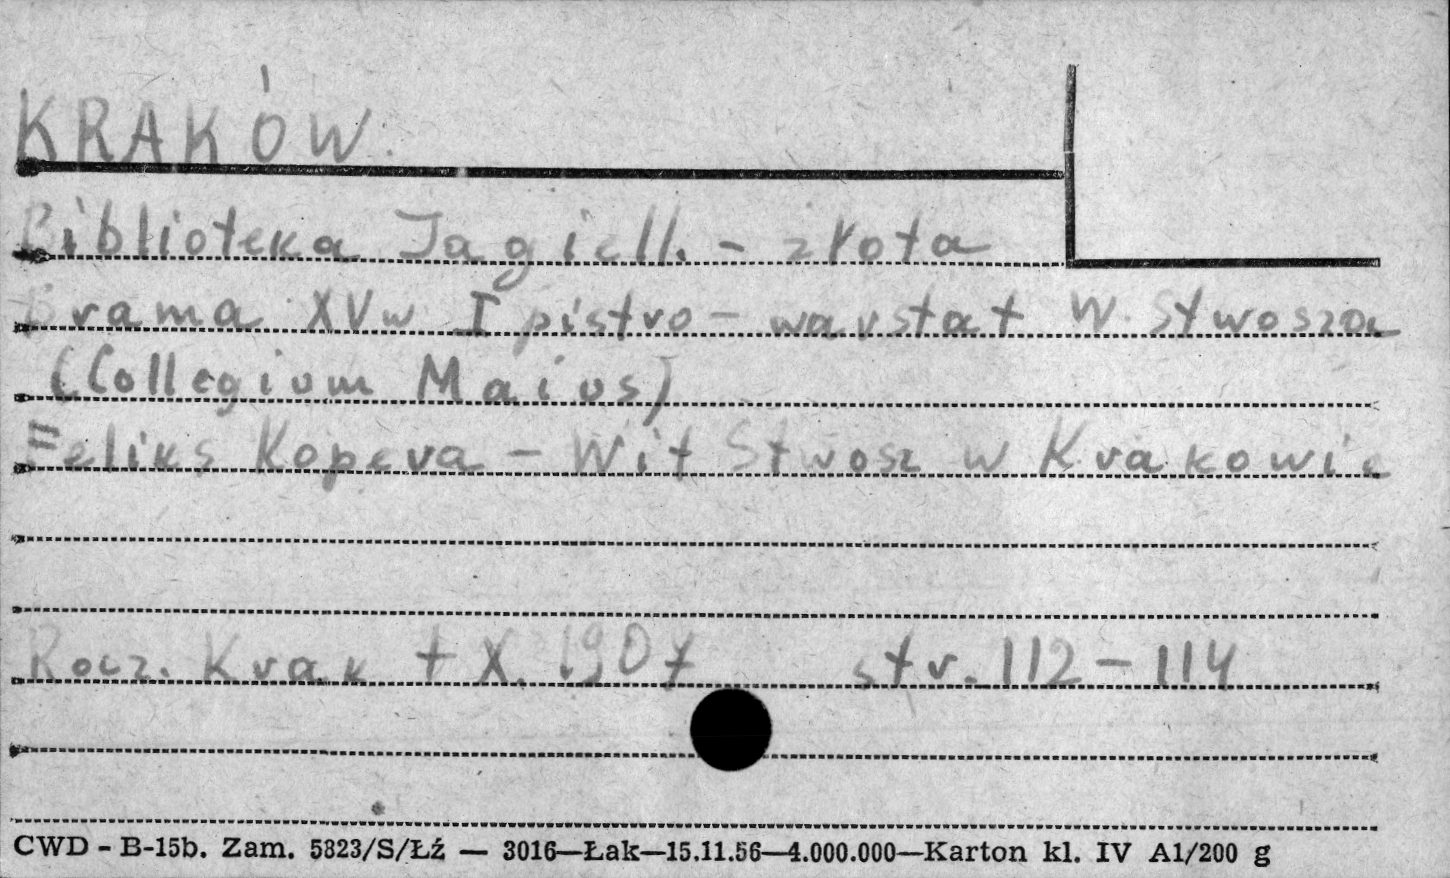 KRAKÓW
Biblioteka Jagiell. - złota
Brama XVw I pistro - warstat W. Stwosza
(Collegium Maius)
Feliks Kopera - Wit Stwosz w Krakowie
Rocz. Krak t X. 1907 str. 112-114
CWD - B-15b. Zam. 5823/S/Łź — 3016—Łak—15.11.56—4.000.000—Karton kl. IV A1/200 g